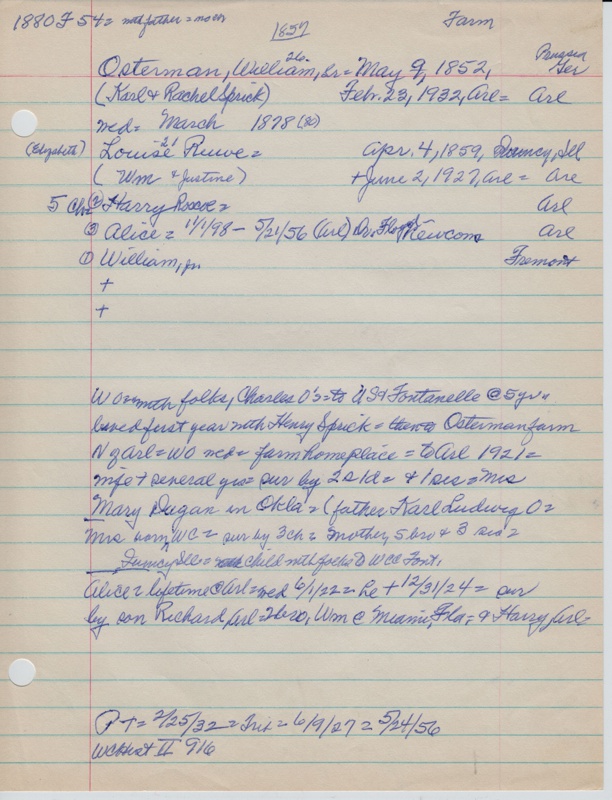 1880 F 54 = with father = mo
Farm
1857
Osterman, William, Sr = May 9, 1852,
26
Ger
(Karl & Rachel Sprick) Feb. 23, 1932, Arl = Arl
med = March 1878 (80)
(Elizabeth) Louise Ruwe = Apr. 4, 1859, Quincy, Ill
21
(Wm & Justine) + June 2, 1927, Arl = Arl
5 Chr (2) Harry Roscoe = Arl
(3) Alice = 1/1/98 - 5/21/56 (Arl) Dr. Floyd Newcom Arl
(1) William, jr. Fremont
+
+
W O = with folks, Charles O's = to US & Fontanelle @ 5 yrs
lived first year with Henry Sprick = Osterman farm
N of Arl = WO med = farm homeplace = to Arl 1921 =
wife + several yrs = sur by 2 s 1 d = & 1 sis = Mrs
Mary Dugan in Okla = (father Karl Ludwig O =
Mrs born WC = sur by 3 ch = mother, 5 bro & 3 sis =
Quincy Ill = child with folks to WCO Font.
Alice = lifetime @ Arl = med 6/1/22 = he + 12/31/24 = sur
by son Richard, Arl = 2 bro, Wm @ Miami, Fla = & Harry Arl =
PT = 2/25/32 = Tri = 6/9/27 = 5/24/56
WCHist II 916